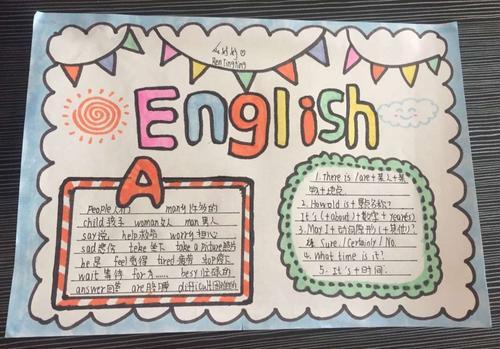 Ren Tingting
English
A
people人们 many许多的
child孩子 woman女人 man男人
say说 help救帮 worry担心
sad悲伤 take take a picture照片
be是 feel觉得 tired疲劳 stop停下
wait等待 for为...... besy忙碌的
answer回答 are difficult
1. There is / are + 某人 + 某
物 + 地点.
2. How old is + 名称?
It's (+about) + 数字 + years)
3. May I + 动词原形 (+其他)?
Sure. / Certainly / No.
4. What time is it?
5. It's + 时间.